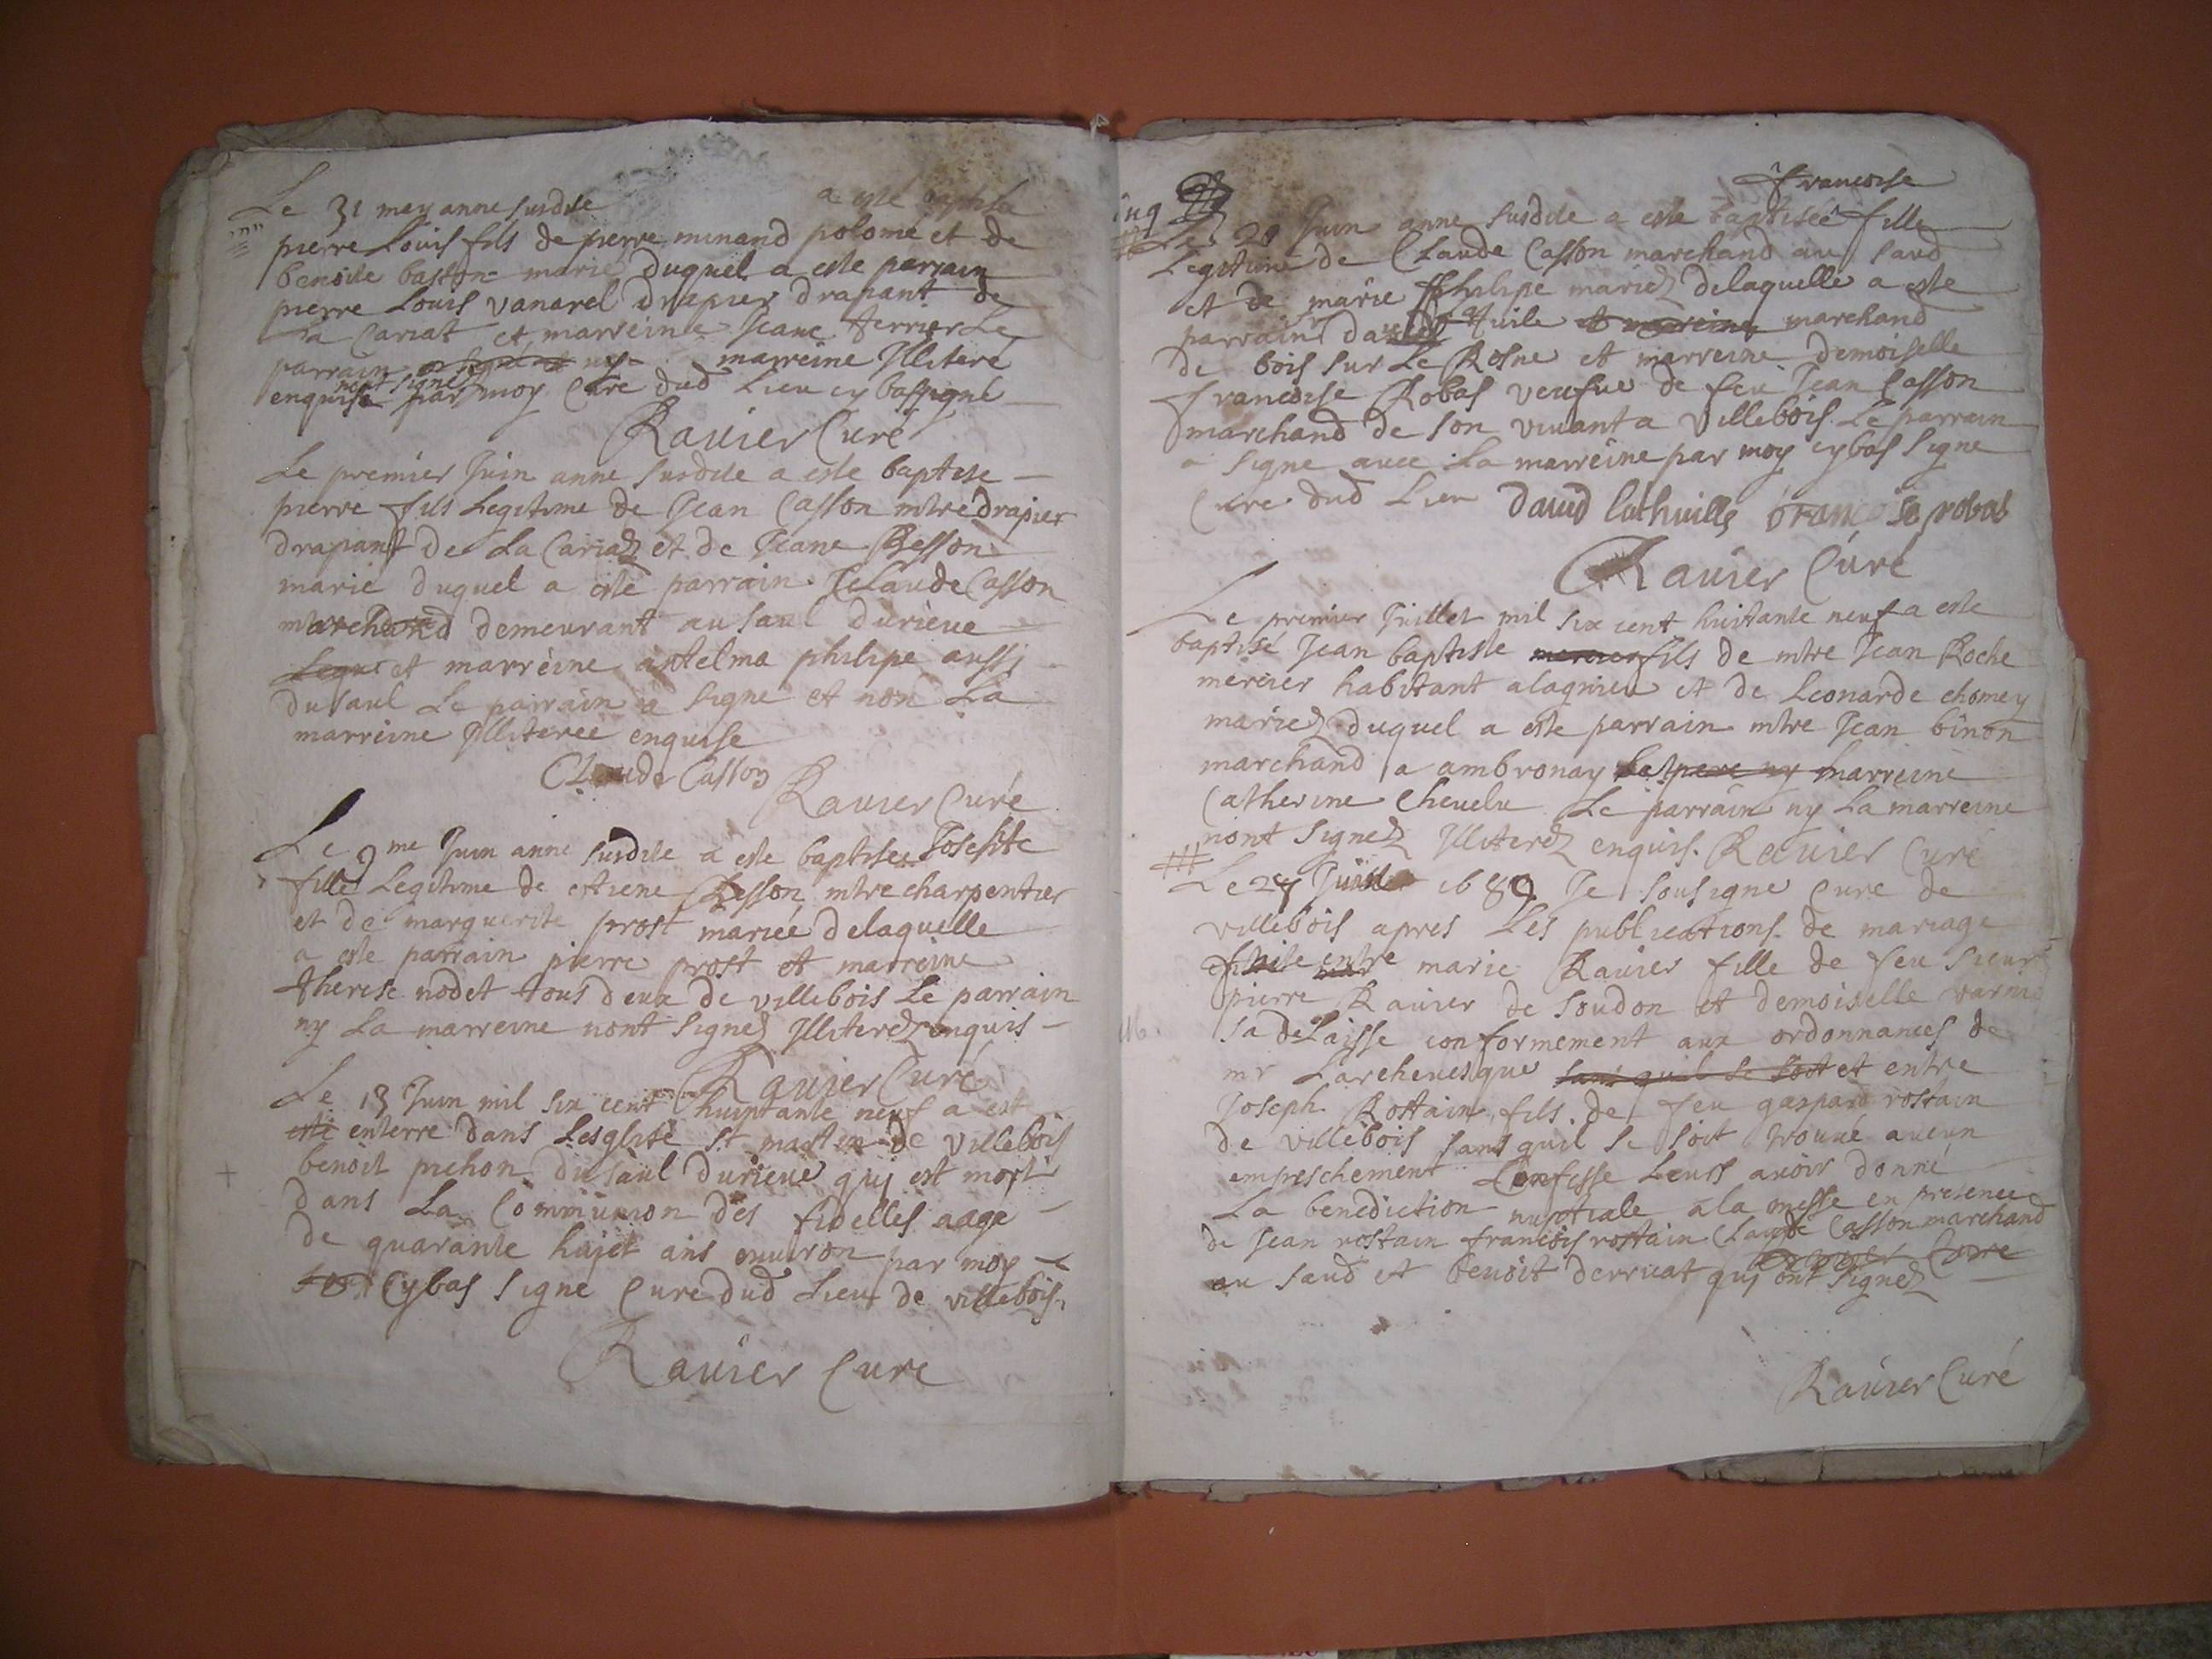 Le 31 may anne susdite a esté baptisé
pierre Louis fils de pierre minand polome et de
benoite baston marié duquel a este parrain
pierre Louis vanarel drapier drapant de
La Cariat et marreine Jeane terrier Le
parrain ny marreine Illiteré
nont signé
enquise par moy Curé dud Lieu cy bassigné
Rauier Curé
Le premier Juin anne susdite a este baptise
pierre fils Legitime de Jean Casson mtre drapier
drapant de La Cariaz et de Jeane Besson
marié duquel a esté parrain Claude Casson
marchand demeurant au saul durieue
Leque et marréine antelma philipe aussi
dusaul Le parrain a signe et non La
marréine Illiterée enquise
Claude Casson
Rauier Curé
Le 9me Juin anne susdite a este baptisee Josephte
fille Legitime de etiene Besson mtre charpentier
et de marguerite prost mariée delaquelle
a este parrain pierre prost et marreine
therese nodet tous deux de villebois Le parrain
ny La marreine nont signez Illiterez enquis
Rauier Curé
Le 13 Juin mil six cent huiptante neuf a est
esté enterre dans Lesglise st martin de villebois
benoit pichon du saul durieue qui est mort
dans La Communion des fidelles aage
de quarante hujet ans environ par moy
Cybas signe Curé dud Lieu de villebois
Rauier Cure
francoise
Le 29 Juin anne susdite a este baptisée fille
Legitime de Claude Casson marchand au saud
et de marie philipe mariez delaquelle a este
parrain david thuile et marreine marchand
de bois sur Le Rosne et marreine demoiselle
francoise Robas veufue de feu Jean Casson
marchand de son vivant a villebois Le parrain
a signe avec La marréine par moy cybas signe
Cure dud Lieu david lathuille francoise robas
Rauier Curé
Le premier Juillet mil six cent huitante neuf a este
baptisé Jean baptiste mercier fils de mtre Jean Roche
mercier habitant alagnieu et de Leonarde chomey
mariez duquel a este parrain mtre Jean binon
marchand a ambronay marreine
Catherine Chevelu Le parrain ny La marreine
nont signez Illiterez enquis. Rauier Curé
Le 27 Juillet 1689 Je sousigne Cure de
villebois apres Les publications de mariage
faite entre marie Rauier fille de feu sieur
pierre Rauier de soudon et demoiselle
sa delaisse conformement aux ordonnances de
mr Larchevesque sans quil se soit et entre
Joseph Rostain fils de feu gaspard rostain
de villebois sans quil se soit trouvé aucun
empeschement Confesse Leurs avoir donné
La benediction nuptiale a la messe en presence
de Jean rostain francois rostain Claude Casson marchand
Rauier Curé
au saud et benoit derrieat qui ont signez
Rauier Curé